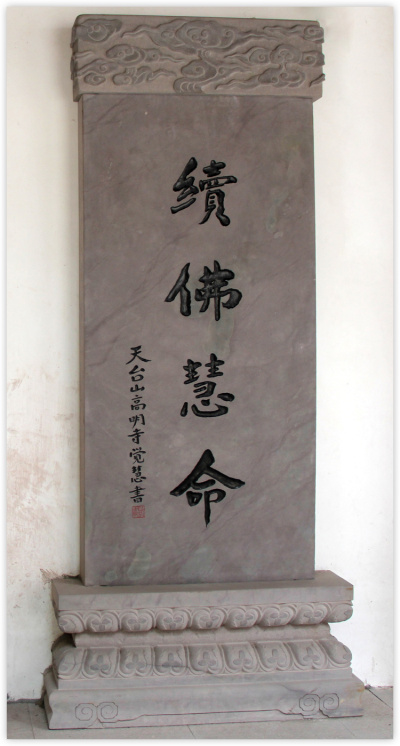 續佛慧命
天台山高明寺覺慧書